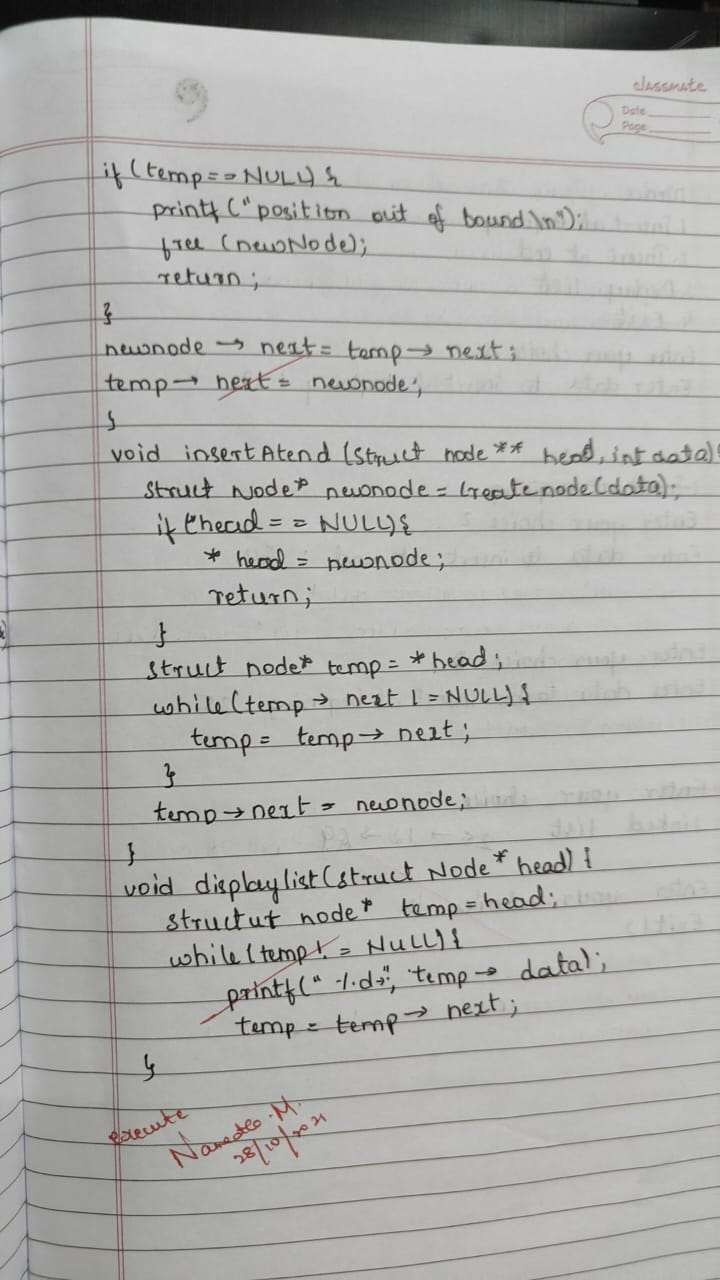 classmate
Date
Page
if (temp == NULL) {
printf ("position out of bound \n");
free (newNode);
return;
}
newnode → next = temp → next;
temp → next = newnode;
}
void insertAtend (struct node ** head, int data) {
struct Node* newnode = Createnode(data);
if (*head == NULL) {
* head = newnode;
return;
}
struct node* temp = *head;
while (temp → next != NULL) {
temp = temp → next;
}
temp → next = newnode;
}
void displaylist (struct Node* head) {
structut node* temp = head;
while (temp != NULL) {
printf(" %d→", temp → data);
temp = temp → next;
}
execute
28/10/2021